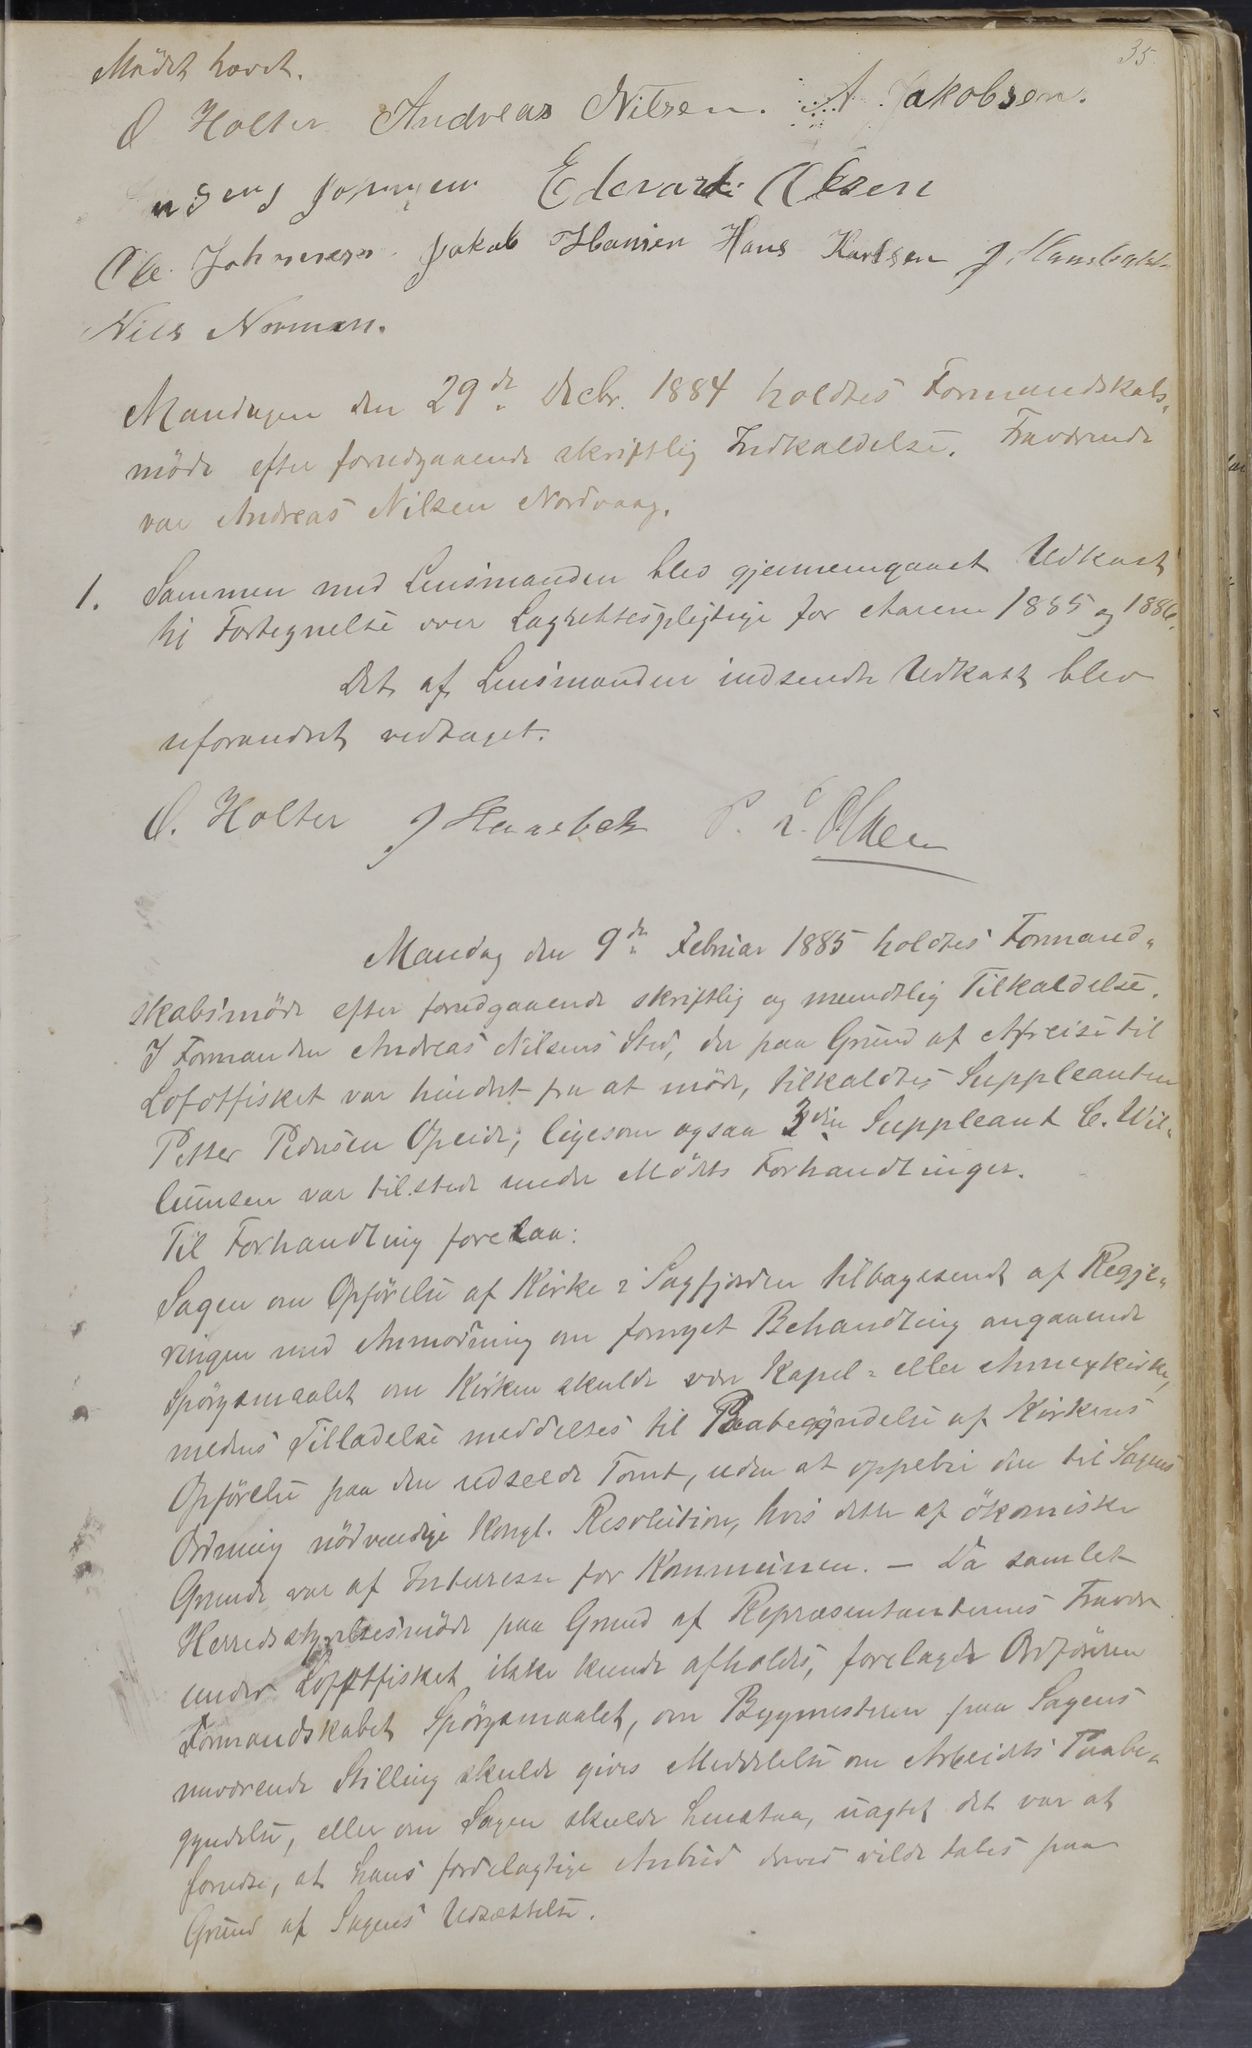 35.
Mödet hævet.
O Holter Andreas Nilsen. A Jakobsen.
Edevart Olsen
Ole Johnsen Jakob Hansen Hans Karlsen J. Haasbakk
Nils Norman.
Mandagen den 29de Decbr. 1884 holdtes Formandskabs„
möde efter forudgaaende skriftlig Indkaldelse. Fraværende
var Andreas Nilsen Nordvaag.
1. Sammen med Lensmanden blev gjennemgaaet Udkast
til Fortegnelse over Lagrettespligtige for Aarene 1885 og 1886.
Det af Lensmanden indsendte Udkast blev
uforandret vedtaget.
O. Holter J Haasbak P. L. Olsen
Mandag den 9de Februar 1885 holdtes Formand„
skabsmöde efter forudgaaende skriftlig og mundtlig Tilkaldelse.
I Formanden Andreas Nilsens Sted, der paa Grund af Afreise til
Lofotfisket var hindret fra at möde, tilkaldtes Suppleanten
Petter Pedersen Opeide; ligesom ogsaa 3die Suppleant C. Wil„
lumsen var tilstede under Mödets Forhandlinger.
Til Forhandling forelaa:
Sagen om Opförelse af Kirke i Sagfjorden tilbagesendt af Regje„
ringen med Anmodning om fornyet Behandling angaaende
Spörgsmaalet om Kirken skulde være Kapel- eller Annexkirke,
medens Tilladelse meddeltes til Paabegyndelse af Kirkens
Opförelse paa den udseede Tomt, uden at oppebie den til Sagens
Ordning nödvendige Kongl. Resolution, hvis dette af ökomiske
Grunde var af Interesse for Kommunen. – Da samlet
Herredsstyrelsesmöde paa Grund af Repræsentanternes Fravær
under Lofotfisket ikke kunde afholdes, forelagde Ordföreren
Formandskabet Spörgsmaalet, om Bygmesteren paa Sagens
nuværende Stilling skulde gives Meddelelse om Arbeidets Paabe„
gyndelse, eller om Sagen skulde henstaa, uagtet det var at
forudse, at hans fordelagtige Anbud derved vilde tabes paa
Grund af Sagens Udsættelse.